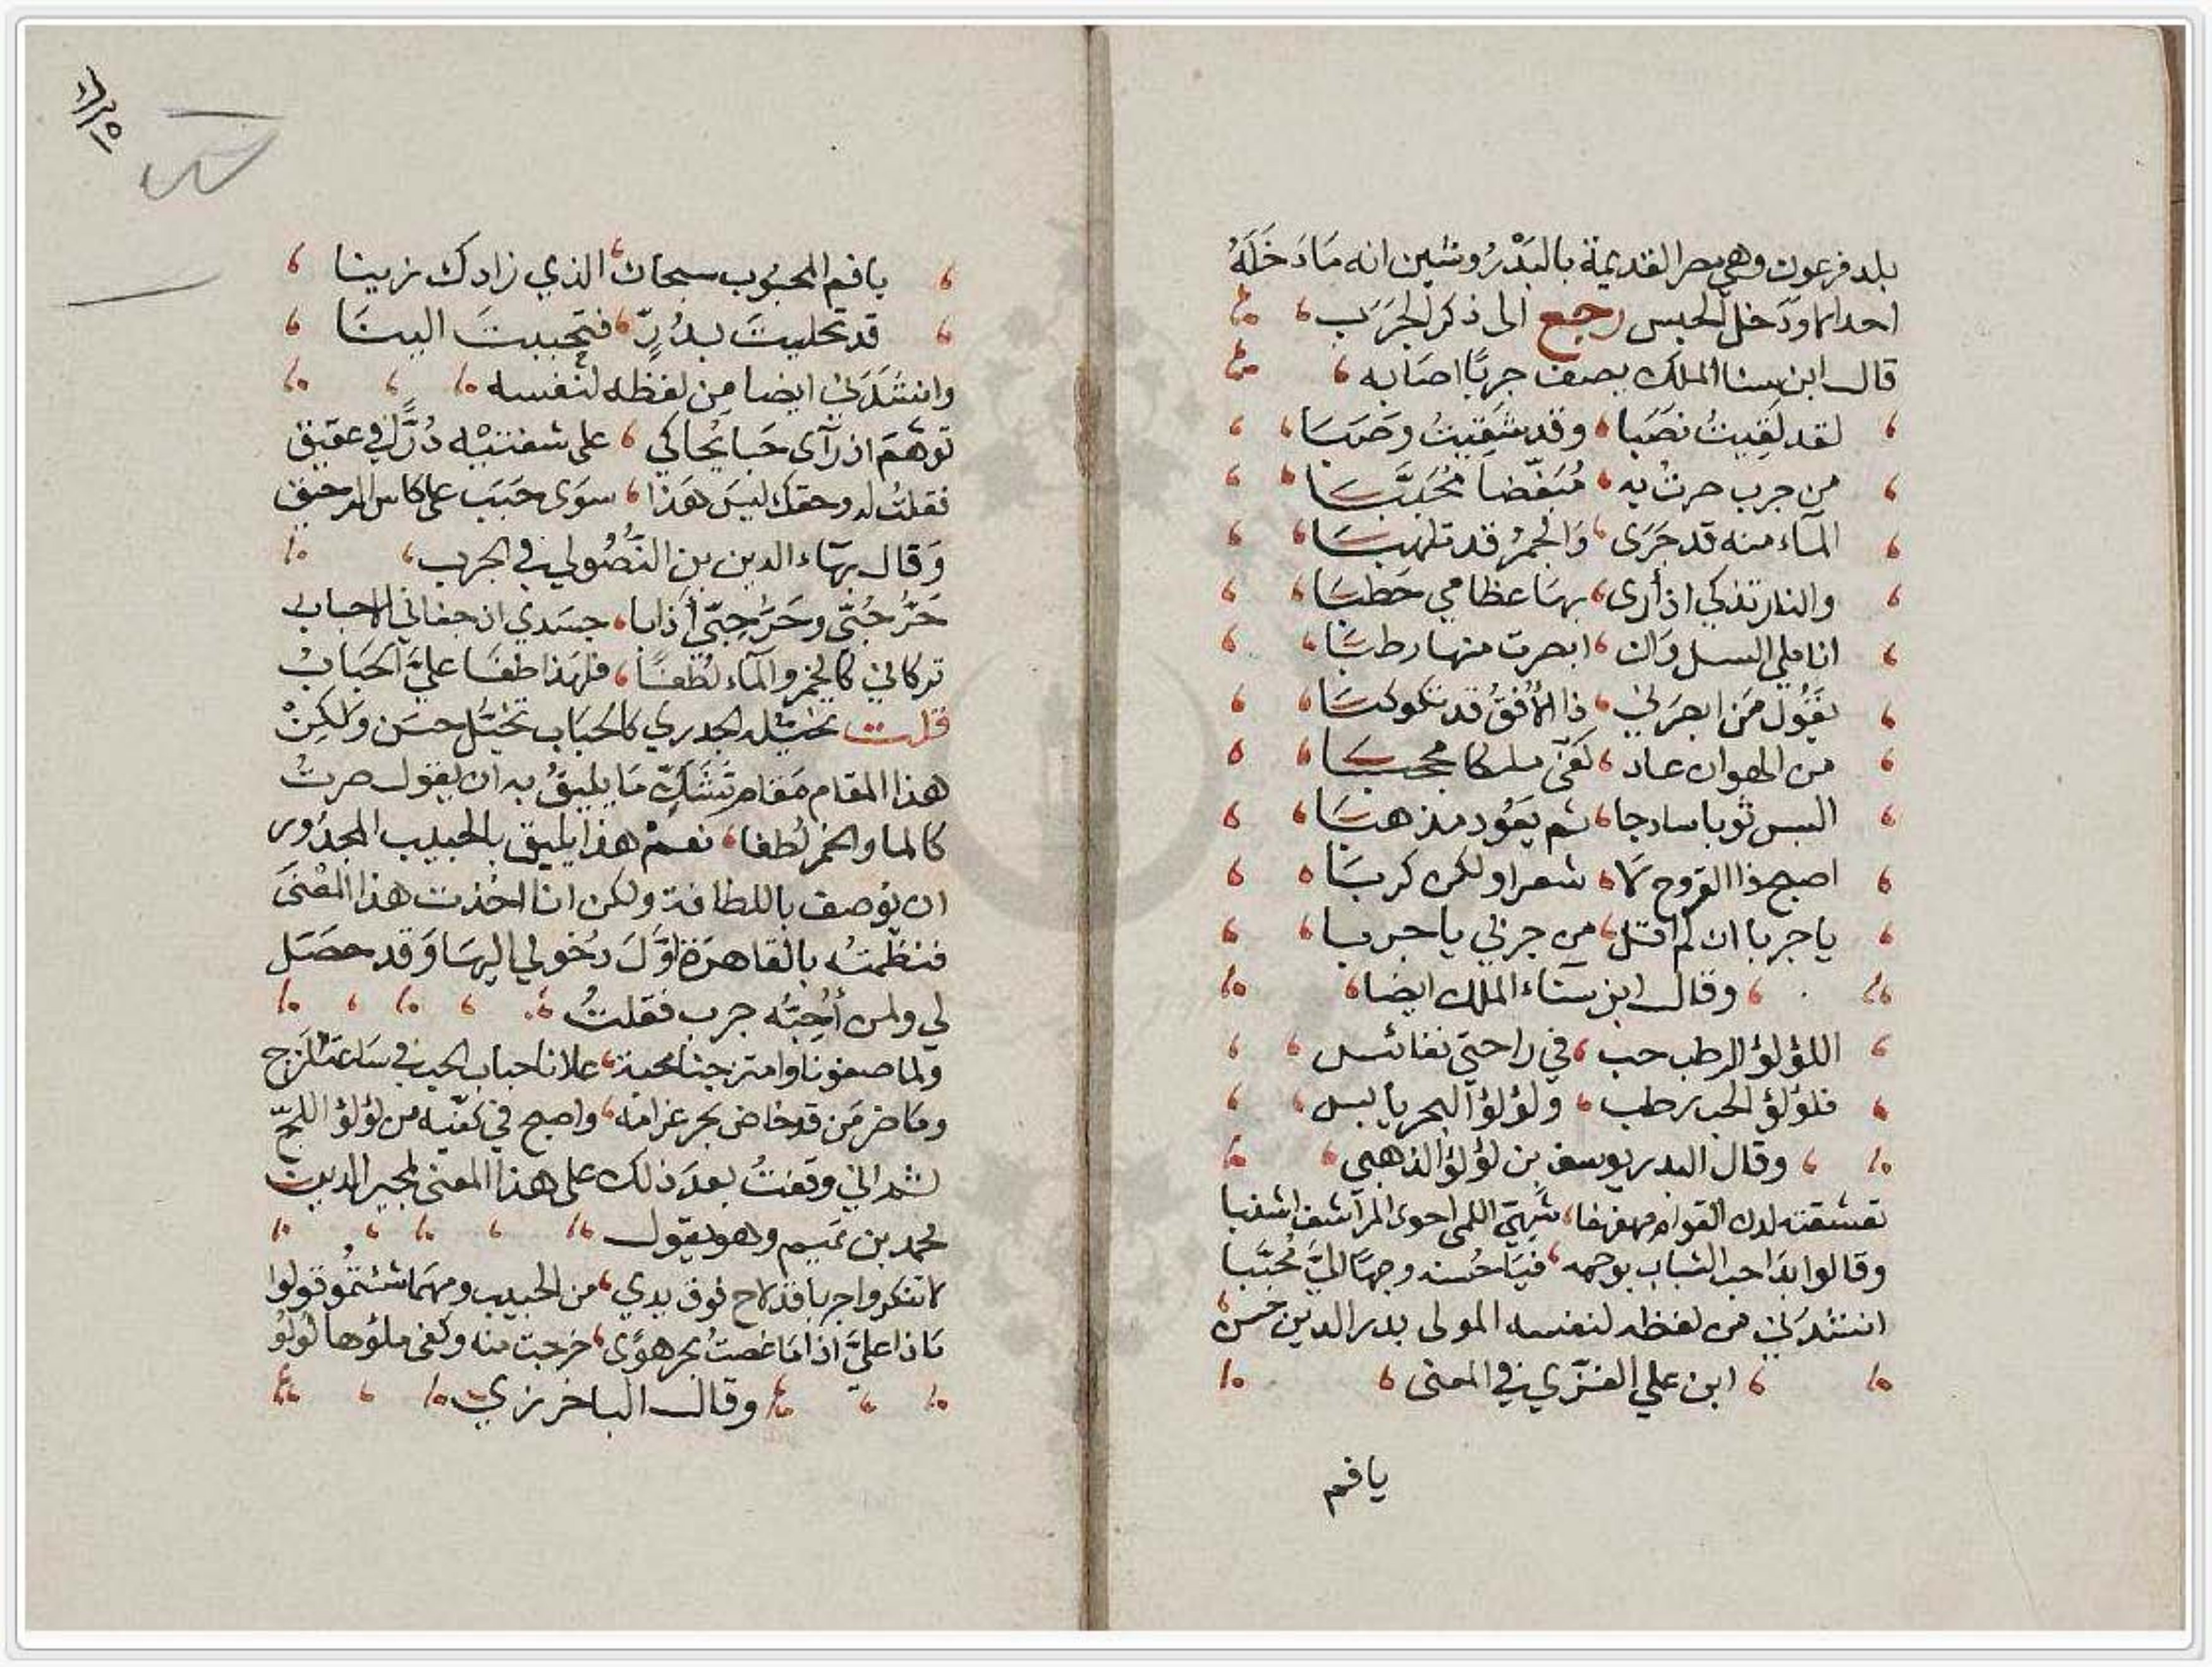 بلد فرعون وهي مصر القديمة بالبَدْرُوشين انه مَا دَخَلَهُ
احد الا ودَخل الحبس رجع الى ذكر الجَرَب
قال ابن سنا الملك يصف جربًا اصَابه
لقد لَقِيتُ نصَبا وقد شَقِيتُ وصَبَا
من جرب صرتُ به مُبَغّضا مُحَبَّبَا
المآء منه قد جَرَى وَالجمرُ قد تلهبَا
والنار تذكي اذ أرى بهَا عظامي حَطبَا
انا ملي السل وان ابصرت منها رطبًا
يقُول مَن ابصرَني ذا الأُفقُ قد تكوكبَا
من الهوان عاد كفّى ملكا محجبَا
البس ثوبا ساذجا ثم يعُود مذهبَا
اصبح ذا القروح لا شعرا ولكن كربَا
يا جربا ان لم اقتل من جربي يا حربا
وقال ابن سنَاء الملك ايضا
اللؤلؤ الرطب حب في راحتي نفائس
فلؤلؤ الحب رطب ولؤلؤ البحر يابس
وقال البدر يوسف بن لؤلؤ الذهبي
تعشقته لدن القوام مهفهفا شَهيّ اللمى احوى المرآشف اشنبا
وقالوا بدَا حب الشباب بوجهه فيَا حُسنه وجهًا اليَّ مُحبّبا
انشدَني من لفظه لنفسه المولى بدر الدين حسن
ابن علي الغزّي في المعنى
يا فم
يا فم المحبُوب سبحان الذي زادك زينا
قد تحليتَ بدُرٍّ فتحببتَ الينَا
وانشَدَني ايضا مِن لفظه لنفسه
توهّمَ اذ رآى حَبا يُحاكي على شفتيْه دُرًّا في عقيق
فقلتُ له وحقك ليسَ هَذا سوَى حَبَب على كاس الرحيق
وَقال بهَاء الدين بن النّصُولي في الجرب
حَرُّ حُبّى وحَرُّ حِبّي أذابا جسَدي اذ جفاني الاحباب
تركاني كالخمر والمآء لُطفًا فلهَذا طفَا عليَّ الحَبَابُ
قلت تخيّله الجدري كالحبَاب تخيّل حسَن ولَكِنْ
هذا المقام مَقام تَشَكٍّ مَا يليقُ به ان يقول صرتُ
كالما والخمر لُطفا نعمْ هذا يليق بالحبيب المجدُور
ان يُوصف باللطافة ولكن انا اخذت هذا المَعْنىَ
فنظمتُه بالقاهرَة اوَّلَ دخُولي اليهَا وَقد حصَل
لي ولمن أُحِبُّه جرب فقلتُ
ولما صفونا وامتزجنا محبة علانا حباب الحب في سَاعَة المَزج
ومَا ضر مَن قد خاض بحر غرامه واصبح في كفّيه من لؤلؤ اللجّ
ثم اني وقفتُ بعدَ ذلك على هذا المعنى لمجير الدين
محمد بن تميم وهو يقول
لا تنكروا جربا قد لاح فوق يدي من الحبيب ومهَما شئتمُو قولوا
مَاذا عليَّ اذا مَا غصتُ بحر هوًى خرجت منه وكفى ملؤها لُولُو
وقال الباخرزي